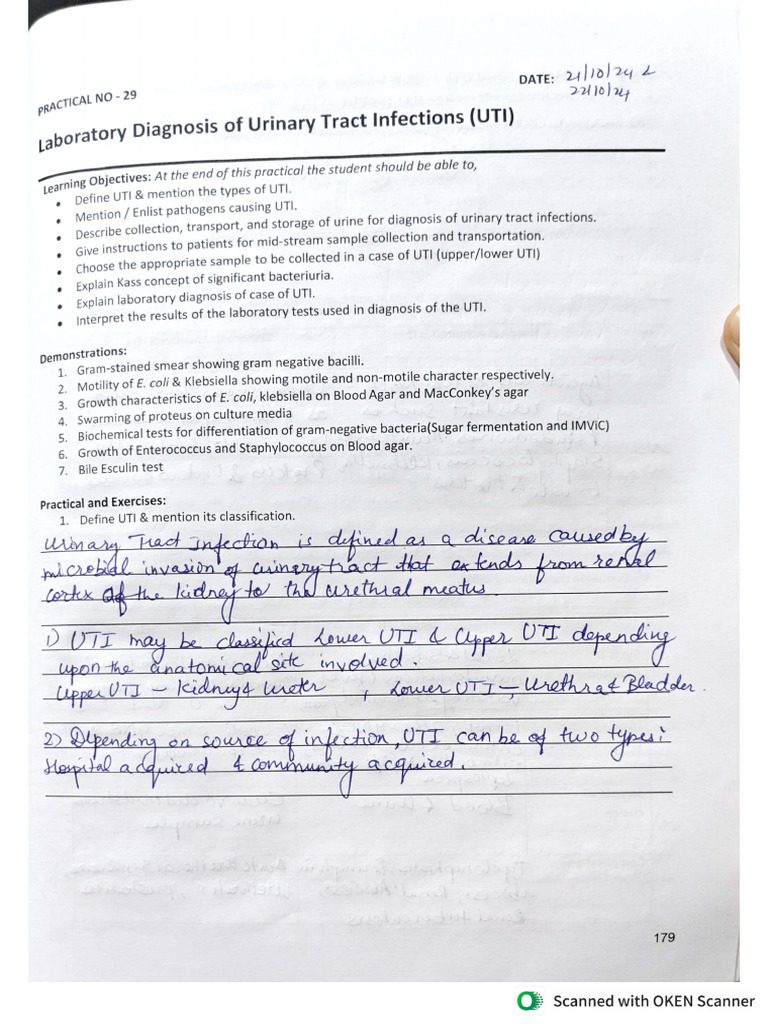 PRACTICAL NO - 29
DATE: 21/10/24 &
22/10/24
Laboratory Diagnosis of Urinary Tract Infections (UTI)
Learning Objectives: At the end of this practical the student should be able to,
• Define UTI & mention the types of UTI.
• Mention / Enlist pathogens causing UTI.
• Describe collection, transport, and storage of urine for diagnosis of urinary tract infections.
• Give instructions to patients for mid-stream sample collection and transportation.
• Choose the appropriate sample to be collected in a case of UTI (upper/lower UTI)
• Explain Kass concept of significant bacteriuria.
• Explain laboratory diagnosis of case of UTI.
• Interpret the results of the laboratory tests used in diagnosis of the UTI.
Demonstrations:
1. Gram-stained smear showing gram negative bacilli.
2. Motility of E. coli & Klebsiella showing motile and non-motile character respectively.
3. Growth characteristics of E. coli, klebsiella on Blood Agar and MacConkey's agar
4. Swarming of proteus on culture media
5. Biochemical tests for differentiation of gram-negative bacteria(Sugar fermentation and IMViC)
6. Growth of Enterococcus and Staphylococcus on Blood agar.
7. Bile Esculin test
Practical and Exercises:
1. Define UTI & mention its classification.
Urinary Tract Infection is defined as a disease caused by
microbial invasion of urinary tract that extends from renal
cortex of the kidney to the urethral meatus
1) UTI may be classified Lower UTI & Upper UTI depending
upon the anatomical site involved.
Upper UTI - Kidney & Ureter , Lower UTI - Urethra & Bladder.
2) Depending on source of infection, UTI can be of two types:
Hospital acquired & community acquired.
179
Scanned with OKEN Scanner